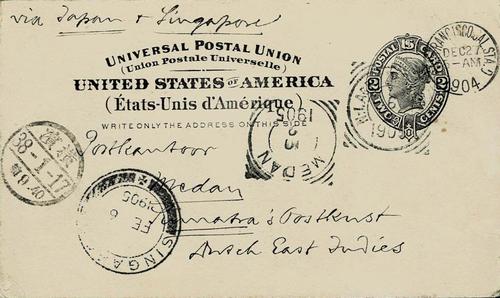 via Japan & Singapore
UNIVERSAL POSTAL UNION
(Union Postale Universelle)
UNITED STATES OF AMERICA
(États-Unis d'Amérique)
WRITE ONLY THE ADDRESS ON THIS SIDE
POSTAL CARD
U S
TWO CENTS
FRANCISCO, CAL. STA. D
DEC 27
-AM
1904
190
1905
23
1
MEDAN
38-1-17
Postkantoor
Medan
Sumatra's Oostkust
Dutch East Indies
SINGA
FE
6
1905